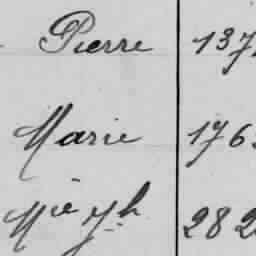 Pierre 137
Marie 176
Mie yh 282